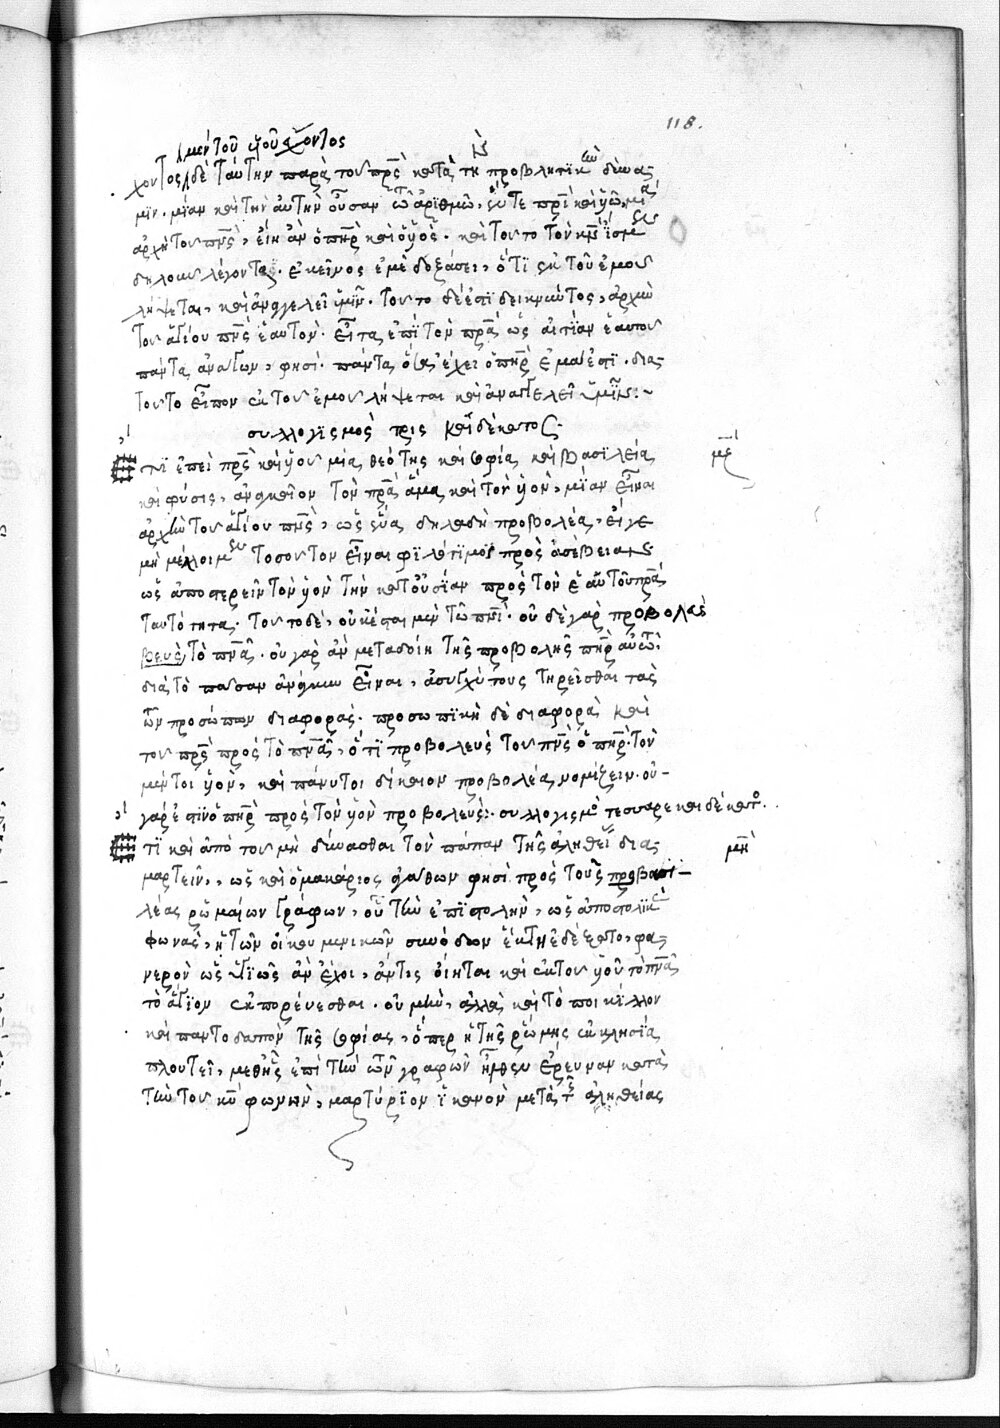 118.
μέν τοῦ υἱοῦ ἔχοντος
χοντος δὲ ταύτην παρὰ τοῦ πρς κατὰ τὴ προβλητικὴν δύνα-
μιν. μίαν καὶ τὴν αὐτὴν οὖσαν τῶ ἀριθμῶ, ἔν τε πρὶ καὶ υἱῶ, μία
ἀρχὴ τοῦ πνς, εἴη ἂν ὁ πηρ καὶ ὁ υἱός. καὶ τοῦτο τὸν κν ἴσμεν
δηλοῦν λέγοντα. ἐκεῖνος ἐμὲ δοξάσει, ὅτι ἐκ τοῦ ἐμοῦ
λήψεται, καὶ ἀναγγελεῖ ὑμῖν. τοῦτο δέ ἐστι δεικνύντος, ἀρχὴν
τοῦ ἁγίου πνς ἑαυτόν. εἶτα ἐπὶ τὸν πρα ὡς αἰτίαν ἑαυτοῦ
πάντα ἀνάγων, φησί. πάντα ὅσα ἔχει ὁ πηρ ἐμά ἐστι. διὰ
τοῦτο εἶπον ἐκ τοῦ ἐμοῦ λήψεται καὶ ἀναγγελεῖ ὑμῖν:~
συλλογισμὸς τρις καὶ δέκατος.
τι ἐπεὶ πρς καὶ υἱοῦ μία θεότης καὶ σοφία καὶ βασιλεία
καὶ φύσις, ἀναγκαῖον τὸν πρα ἅμα καὶ τὸν υἱὸν, μίαν εἶναι
ἀρχὴν τοῦ ἁγίου πνς, ὡς ἕνα δηλαδὴ προβολέα, εἴγε
μὴ μέλλοιμεν τοσοῦτον εἶναι φιλότιμοι πρὸς ἀσέβειαν
ὡς ἀποστερεῖν τὸν υἱὸν τὴν κατ' οὐσίαν πρὸς τὸν ἑαυτοῦ πρα
ταυτότητα. τοῦτο δὲ, οὐκ ἔσται μὲν τῶ πνι. οὐδὲ γὰρ προβολεὺς
βευς τὸ πνα. οὐ γὰρ ἂν μεταδοίη τῆς προβολῆς πηρ αὐτῶ.
διὰ τὸ πᾶσαν ἀνάγκην εἶναι, ἀσυγχύτους τηρεῖσθαι τὰς
τῶν προσώπων διαφοράς. προσωπικὴ δὲ διαφορὰ καὶ
τοῦ πρς πρὸς τὸ πνα, ὅτι προβολεὺς τοῦ πνς ὁ πηρ. τὸν
μέντοι υἱὸν, καὶ πάνυ τοι δίκαιον προβολέα νομίζειν. οὐ-
γάρ ἐστιν ὁ πηρ πρὸς τὸν υἱὸν προβολεύς:. συλλογισμὸς τεσσαρεκαιδέκατος.
τι καὶ ἀπὸ τοῦ μὴ δύνασθαι τὸν πάπαν τῆς ἀληθείας δια-
μαρτεῖν, ὡς καὶ ὁ μακάριος ἀγάθων φησὶ πρὸς τοὺς βασι-
λέας ῥωμαίων γράφων, οὗ τὴν ἐπιστολὴν, ὡς ἀποστολικὰς
φωνὰς, ἡ τῶν οἰκουμενικῶν συνόδων ἕκτη ἐδέξατο, φα-
νερὸν ὡς ὑγιῶς ἂν ἔχοι, ἄν τις οἴηται καὶ ἐκ τοῦ υἱοῦ τὸ πνα
τὸ ἅγιον ἐκπορεύεσθαι. οὐ μὴν, ἀλλὰ καὶ τὸ ποικίλλον
καὶ παντοδαπὸν τῆς σοφίας, ὅπερ ἡ τῆς ῥώμης ἐκκλησία
πλουτεῖ, μεθ' ἧς ἐπὶ τὴν τῶν γραφῶν ἦλθεν ἔρευναν κατὰ
τὴν τοῦ κυ φωνὴν, μαρτύριον ἱκανὸν μετὰ τῆς ἀληθείας